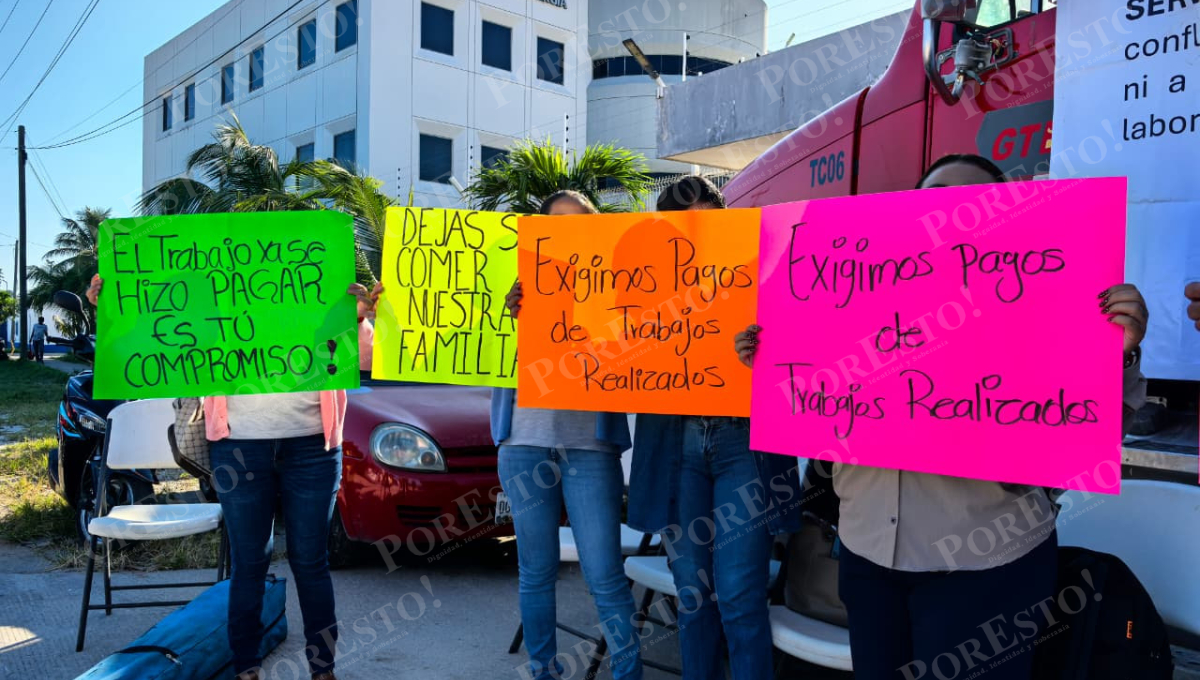 EL Trabajo ya se
Hizo PAGAR
ES TÚ
COMPROMISO!
DEJAS S
COMER
NUESTRA
FAMILIA
Exigimos Pagos
de Trabajos
Realizados
Exigimos Pagos
de
Trabajos Realizados
TC06
SERV
conflu
ni a
labor
PORESTO!
Dignidad, Identidad y Soberanía